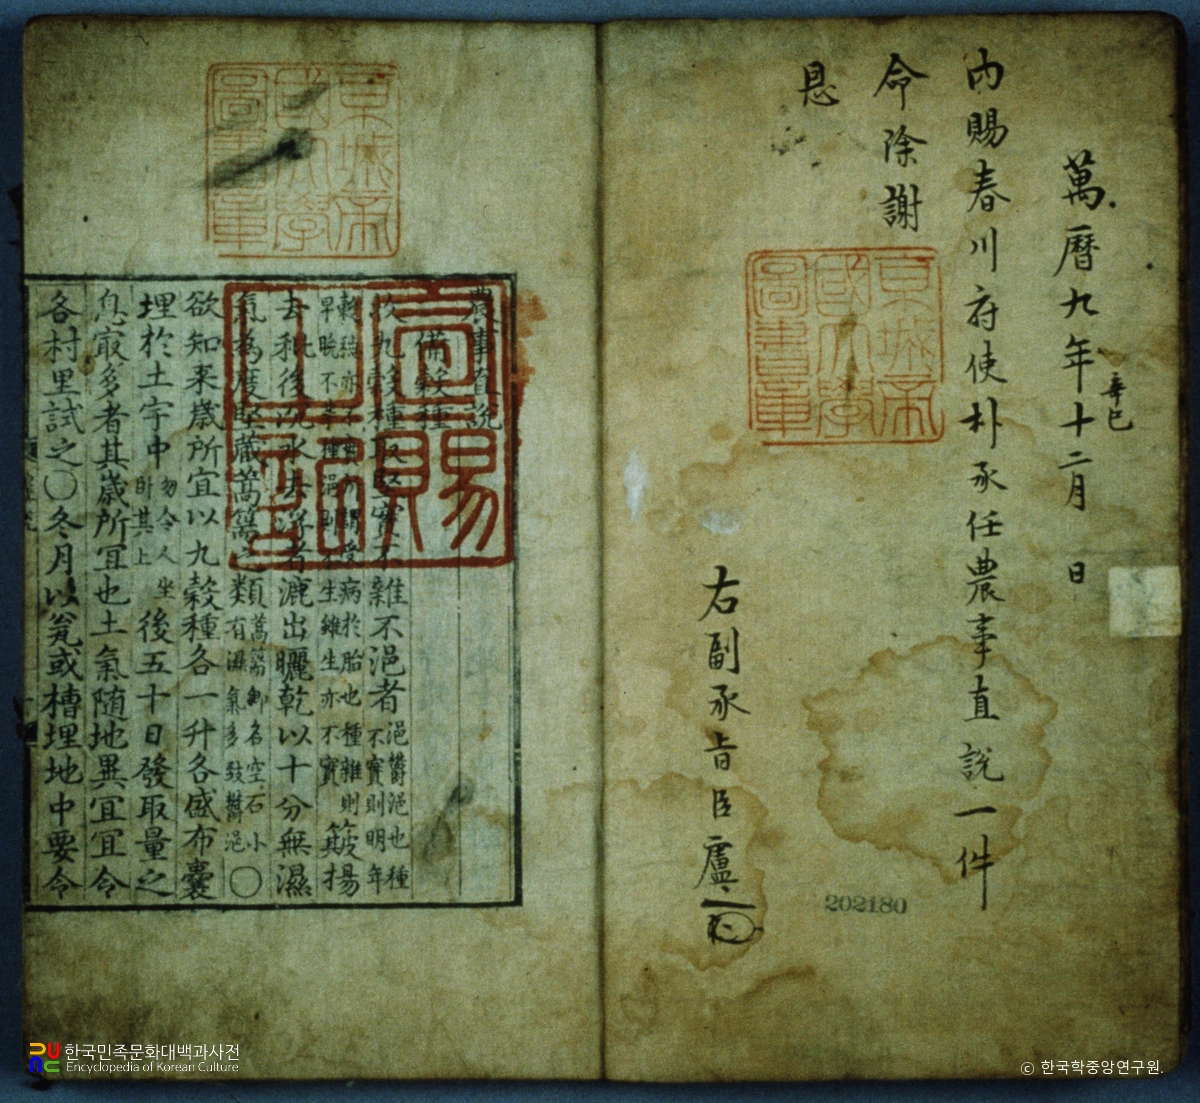 萬曆九年十二月 日
辛巳
內賜春川府使朴承任農事直說一件
命除謝
恩
右副承旨臣盧
京城帝
國大學
圖書章
202180
京城帝
國大學
圖書章
宣賜
農事直說
備穀種
收九穀種取堅實不雜不浥者
浥欝浥也種
不實則明年
種雜則
早晩不
簸揚
去秕後沉水去浮者漉出曬乾以十分無濕
氣爲度堅藏蒿篅之類
蒿篅鄕名空石小
有濕氣多致欝浥
〇
欲知來歲所宜以九穀種各一升各盛布囊
埋於土宇中
勿令人坐
卧其上
後五十日發取量之
息最多者其歲所宜也土氣隨地異宜宜令
各村里試之〇冬月以瓮或槽埋地中要令
한국민족문화대백과사전
Encyclopedia of Korean Culture
ⓒ 한국학중앙연구원.